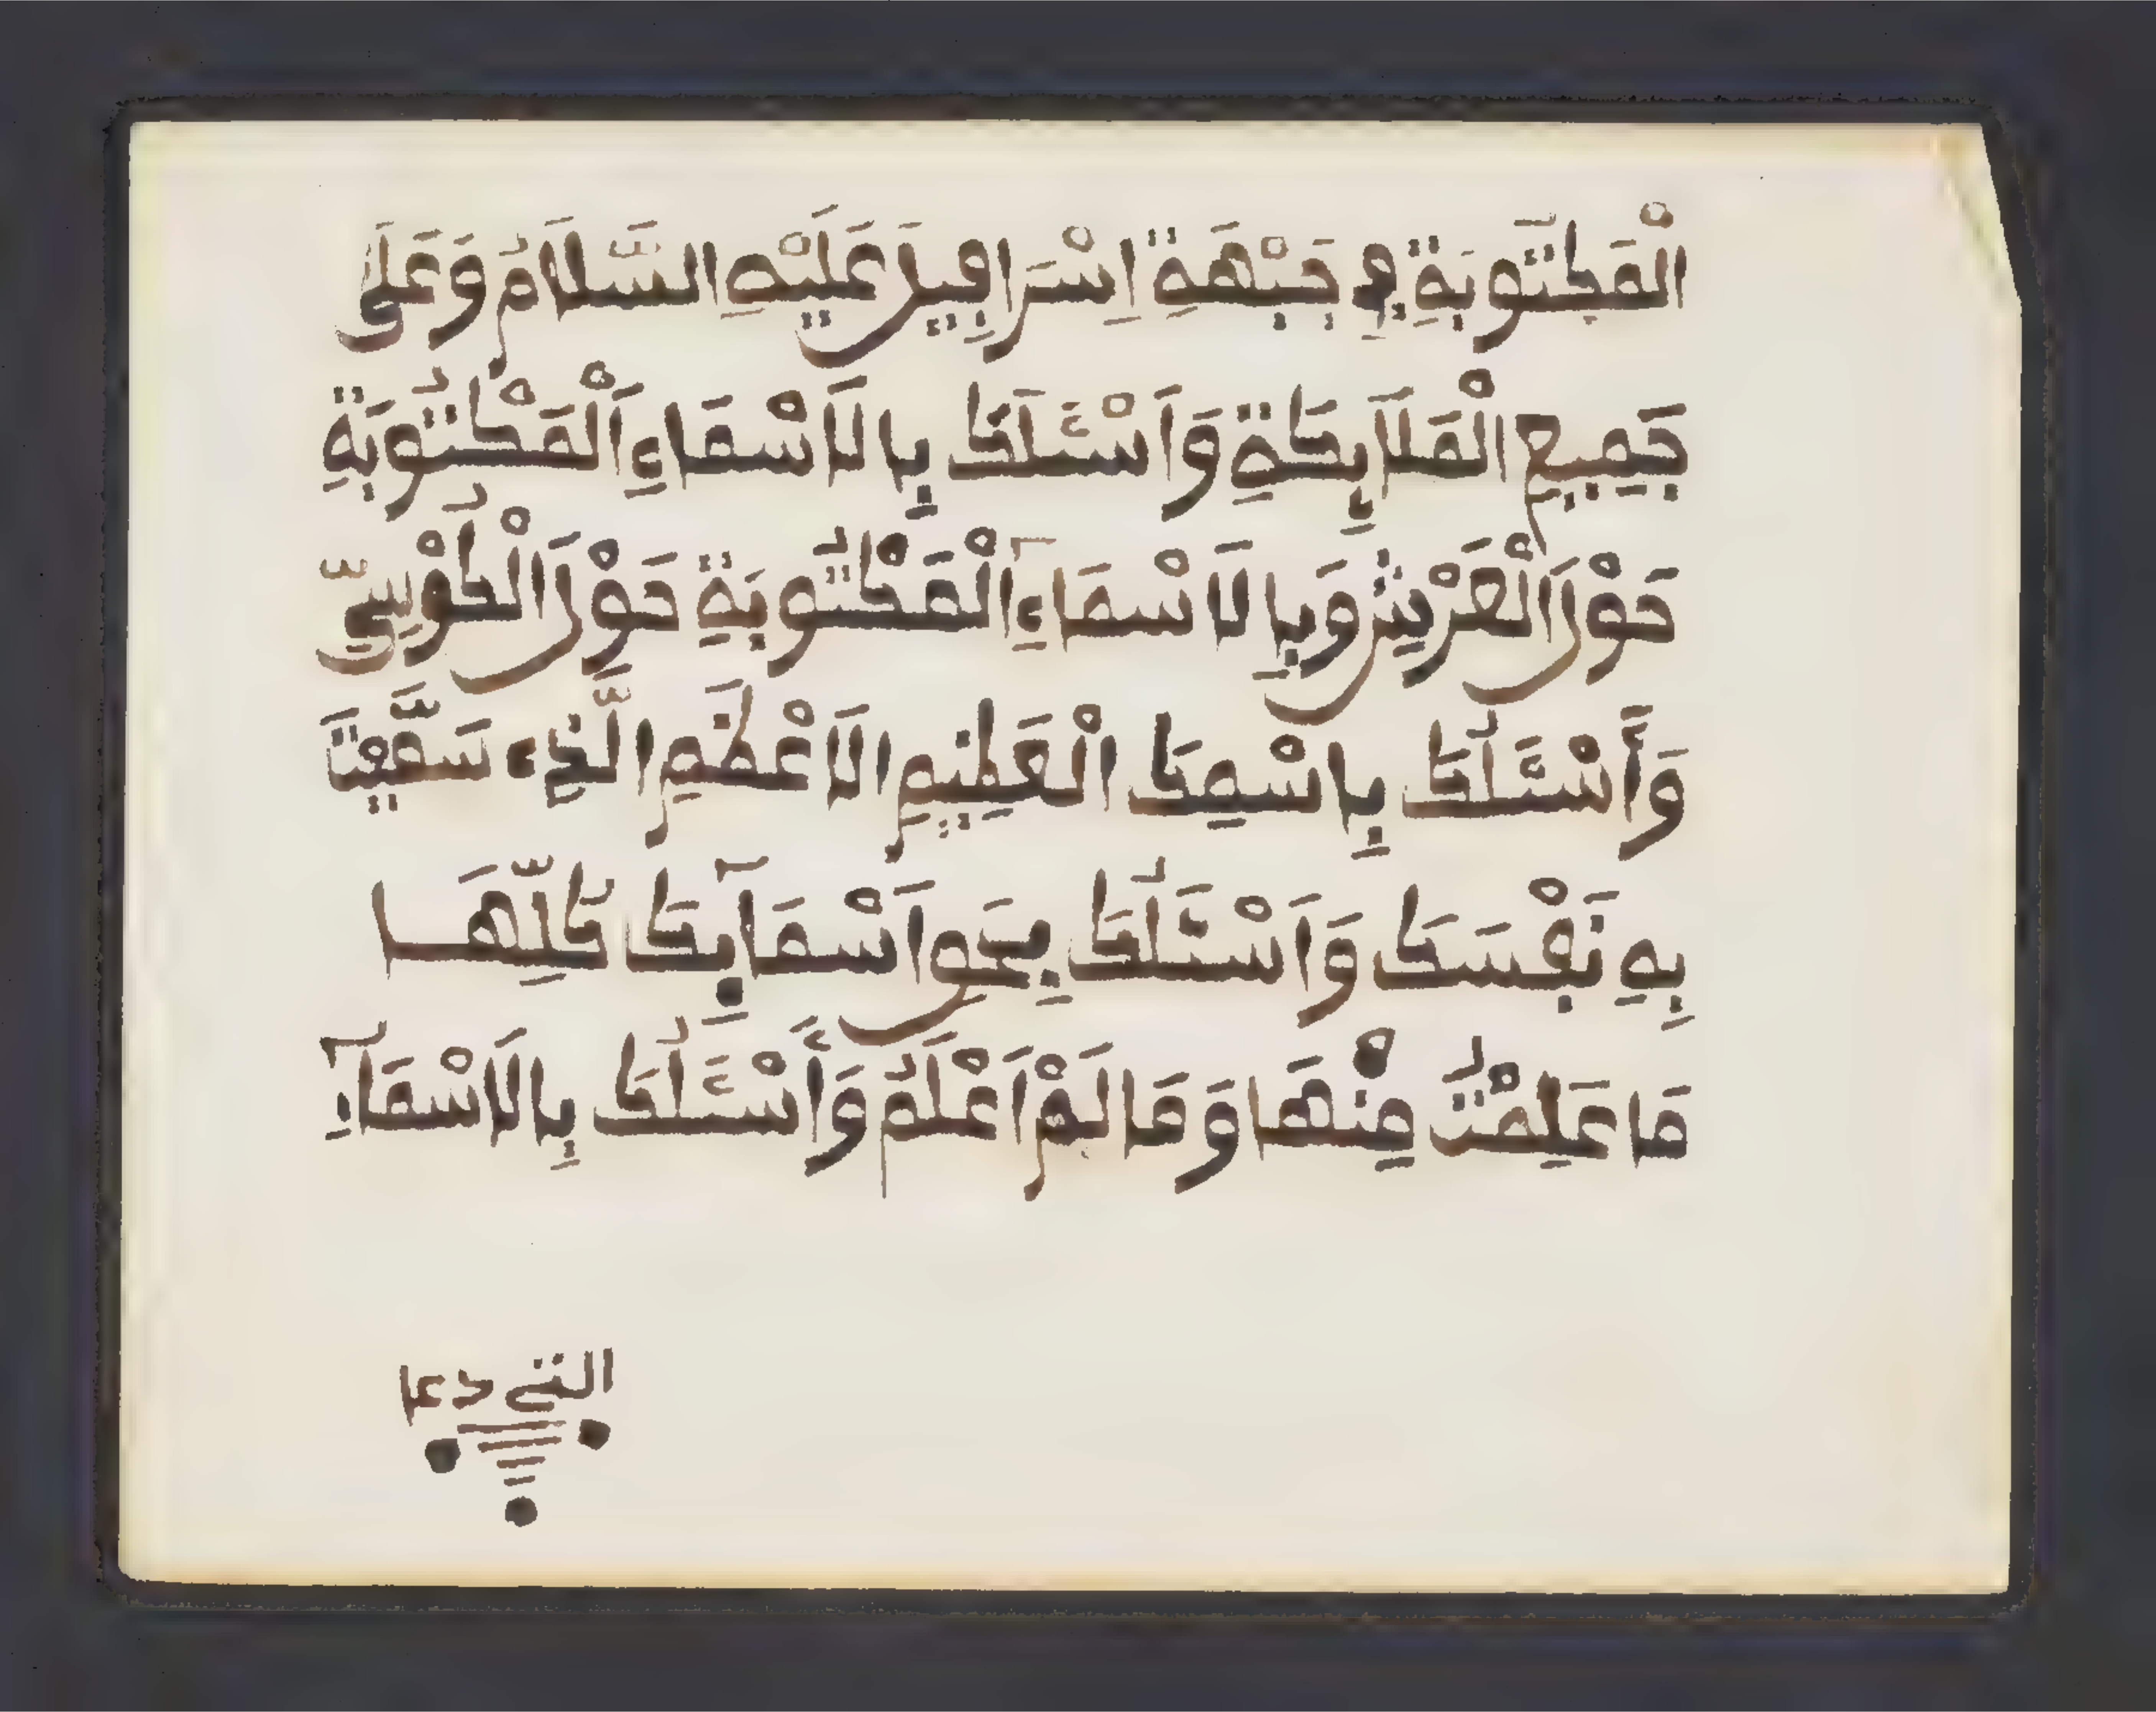 الْمَكْتُوبَةِ فِي جَبْهَةِ اِسْرَافِيلَ عَلَيْهِ السَّلَامُ وَعَلَى
جَمِيعِ الْمَلَآيِكَةِ وَاَسْئَلُكَ بِالَاسْمَاءِ اَلْمَكْتُوبَةِ
حَوْلَ اَلْعَرْشِ وَبِالَاسْمَآءِ اَلْمَكْتُوبَةِ حَوْلَ اَلْكُوْسِيّ
وَأَسْئَلُكَ بِاسْمِكَ الْعَظِيمِ الَاعْظَمِ الَّذِے سَمَّيْتَ
بِهِ نَفْسَكَ وَاَسْئَلُكَ بِحَقِ اَسْمَآيِكَ كُلِّهَا
مَا عَلِمْتُ مِنْهَا وَمَا لَمْ اَعْلَمُ وَأَسْئَلُكَ بِالَاسْمَآءِ
التي دعا